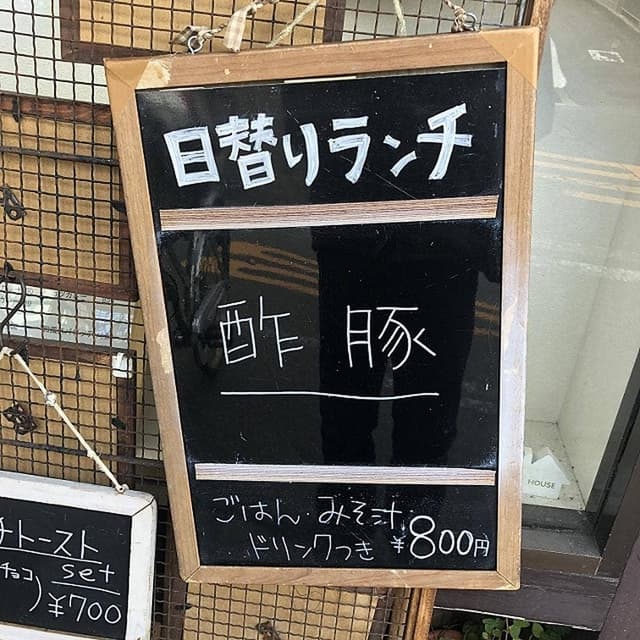 日替りランチ
酢豚
ごはん・みそ汁
ドリンクつき ¥800円
チトースト
チョコ) set
¥700
HOUSE